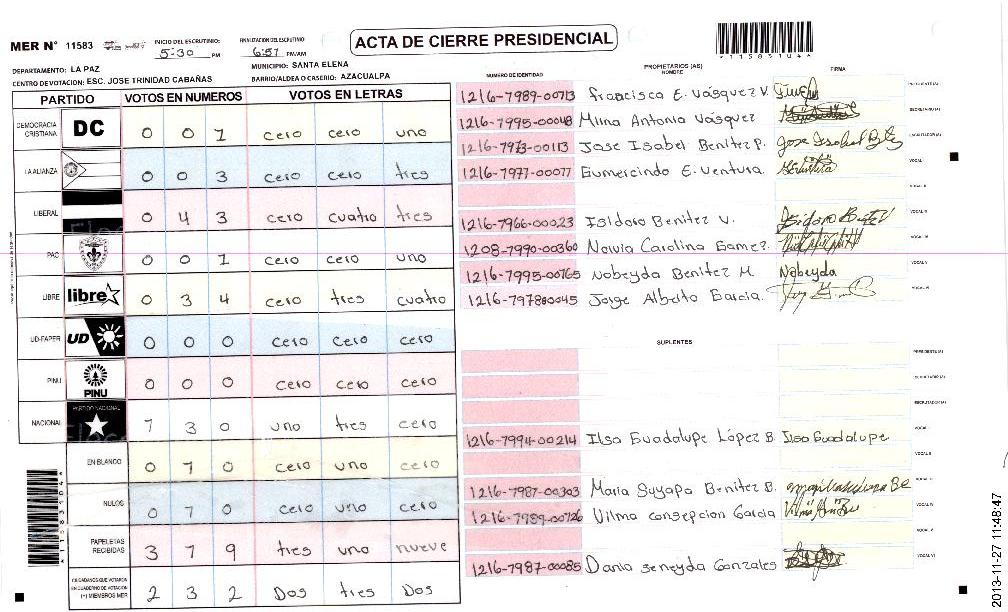 MER N° 11583
INICIO DEL ESCRUTINIO: 5:30 PM
FINALIZACION DEL ESCRUTINIO 6:57 PM/AM
ACTA DE CIERRE PRESIDENCIAL
*11583104*
DEPARTAMENTO: LA PAZ
MUNICIPIO: SANTA ELENA
CENTRO DE VOTACION: ESC. JOSE TRINIDAD CABAÑAS
BARRIO/ALDEA O CASERIO: AZACUALPA
PARTIDO VOTOS EN NUMEROS VOTOS EN LETRAS
DEMOCRACIA CRISTIANA DC 0 0 1 cero cero uno
LA ALIANZA 0 0 3 cero cero tres
LIBERAL 0 4 3 cero cuatro tres
PAC 0 0 1 cero cero uno
LIBRE libre 0 3 4 cero tres cuatro
UD-FAPER UD 0 0 0 cero cero cero
PINU PINU 0 0 0 cero cero cero
NACIONAL PARTIDO NACIONAL 1 3 0 uno tres cero
EN BLANCO 0 1 0 cero uno cero
NULOS 0 1 0 cero uno cero
PAPELETAS RECIBIDAS 3 1 9 tres uno nueve
CIUDADANOS QUE VOTARON EN CUADERNO DE VOTACION (+) MIEMBROS MER 2 3 2 Dos tres Dos
NUMERO DE IDENTIDAD PROPIETARIOS (AS) NOMBRE FIRMA
1216-1989-00113 Francisca E. Vásquez V. PRESIDENTE(A)
1216-1995-00048 Mlina Antonia Vásquez SECRETARIO(A)
1216-1973-00113 Jose Isabel Benitez P. ESCRUTADOR(A)
1216-1977-00077 Gumercindo E. Ventura. VOCAL I
VOCAL II
1216-1966-00023 Isidoro Benitez V. VOCAL III
1208-1990-00360 Navia Carolina Gamez. VOCAL IV
1216-1995-00165 Nobeyda Benitez M. Nobeyda VOCAL V
1216-197800045 Jorge Alberto Garcia. VOCAL VI
SUPLENTES
PRESIDENTE(A)
SECRETARIO(A)
ESCRUTADOR(A)
1216-1994-00214 Ilsa Guadalupe López B Ilsa Guadalupe VOCAL I
VOCAL II
1216-1987-00303 Maria Suyapa Benitez B. VOCAL III
1216-1989-00126 Vilma consepcion Garcia VOCAL IV
VOCAL V
1216-1987-00085 Dania Seneyda Gonzales VOCAL VI
*11583104*
2013-11-27 11:48:47